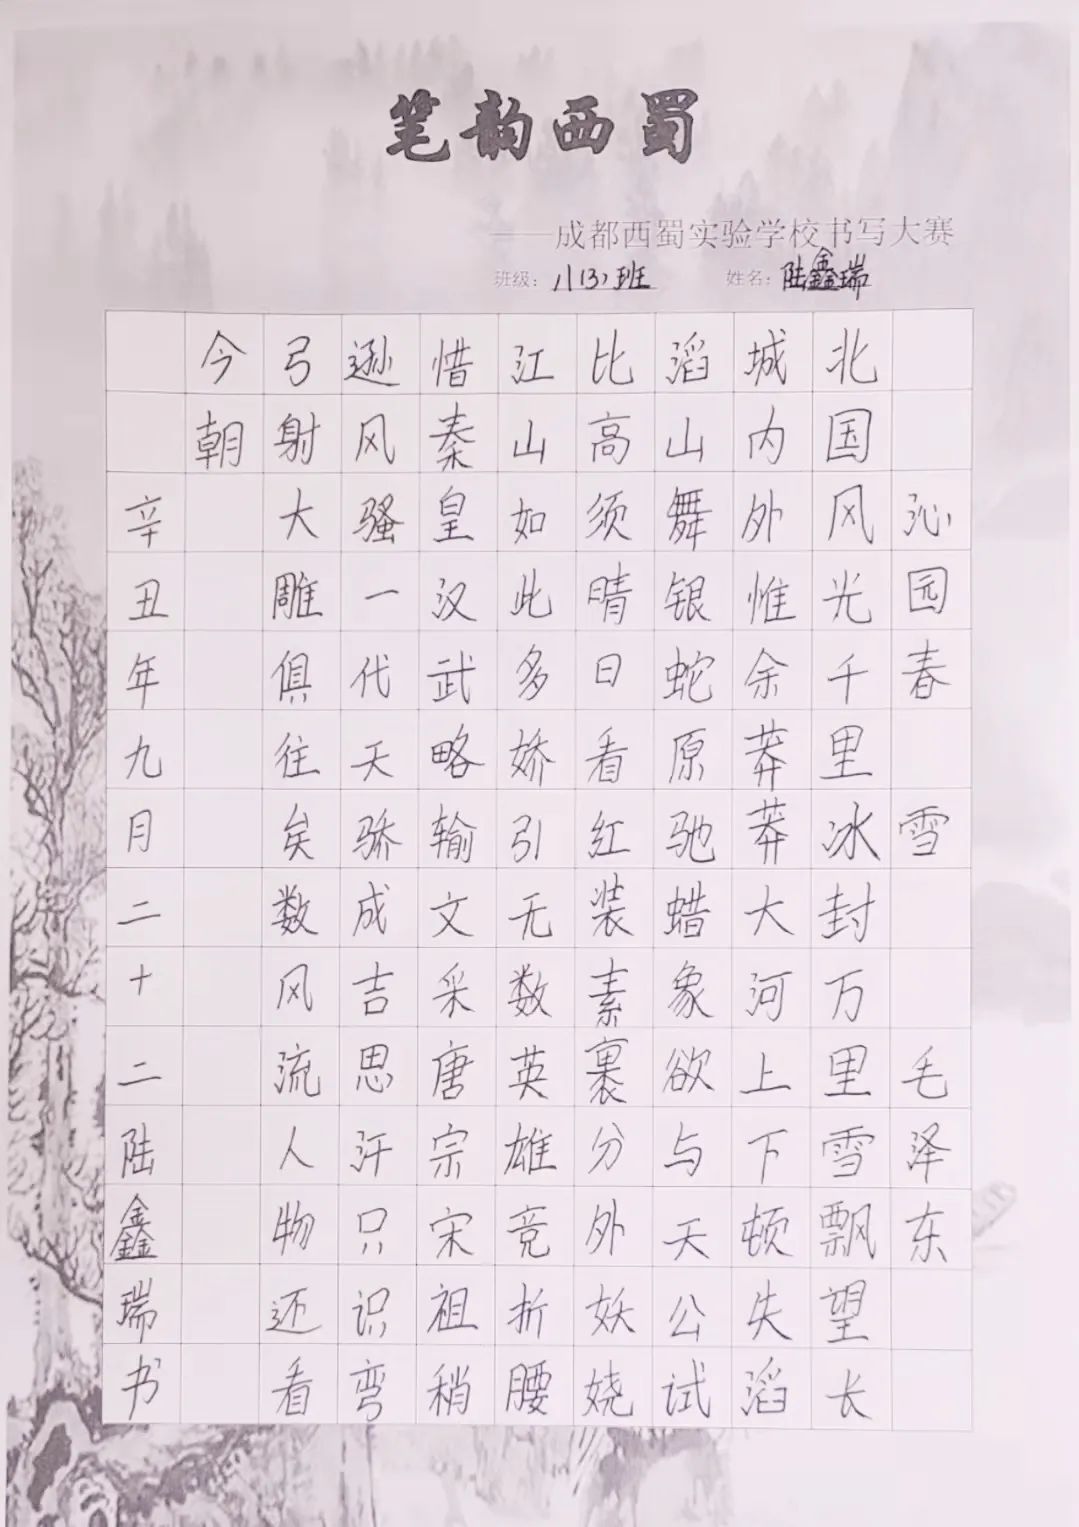 笔韵西蜀
——成都西蜀实验学校书写大赛
班级：八(3)班 姓名：陆鑫瑞
沁园春 雪 毛泽东
北国风光千里冰封万里雪飘望长
城内外惟余莽莽大河上下顿失滔
滔山舞银蛇原驰蜡象欲与天公试
比高须晴日看红装素裹分外妖娆
江山如此多娇引无数英雄竞折腰
惜秦皇汉武略输文采唐宗宋祖稍
逊风骚一代天骄成吉思汗只识弯
弓射大雕俱往矣数风流人物还看
今朝
辛丑年九月二十二陆鑫瑞书